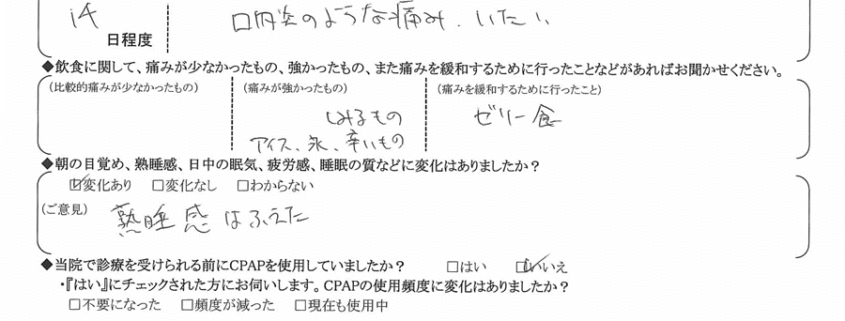 14
日程度
口内炎のような痛み．いたい
◆飲食に関して、痛みが少なかったもの、強かったもの、また痛みを緩和するために行ったことなどがあればお聞かせください。
(比較的痛みが少なかったもの) (痛みが強かったもの) (痛みを緩和するために行ったこと)
しみるもの ゼリー食
アイス、氷、辛いもの
◆朝の目覚め、熟睡感、日中の眠気、疲労感、睡眠の質などに変化はありましたか？
☑変化あり □変化なし □わからない
(ご意見) 熟睡感はふえた
◆当院で診療を受けられる前にCPAPを使用していましたか？ □はい ☑いいえ
・『はい』にチェックされた方にお伺いします。CPAPの使用頻度に変化はありましたか？
□不要になった □頻度が減った □現在も使用中